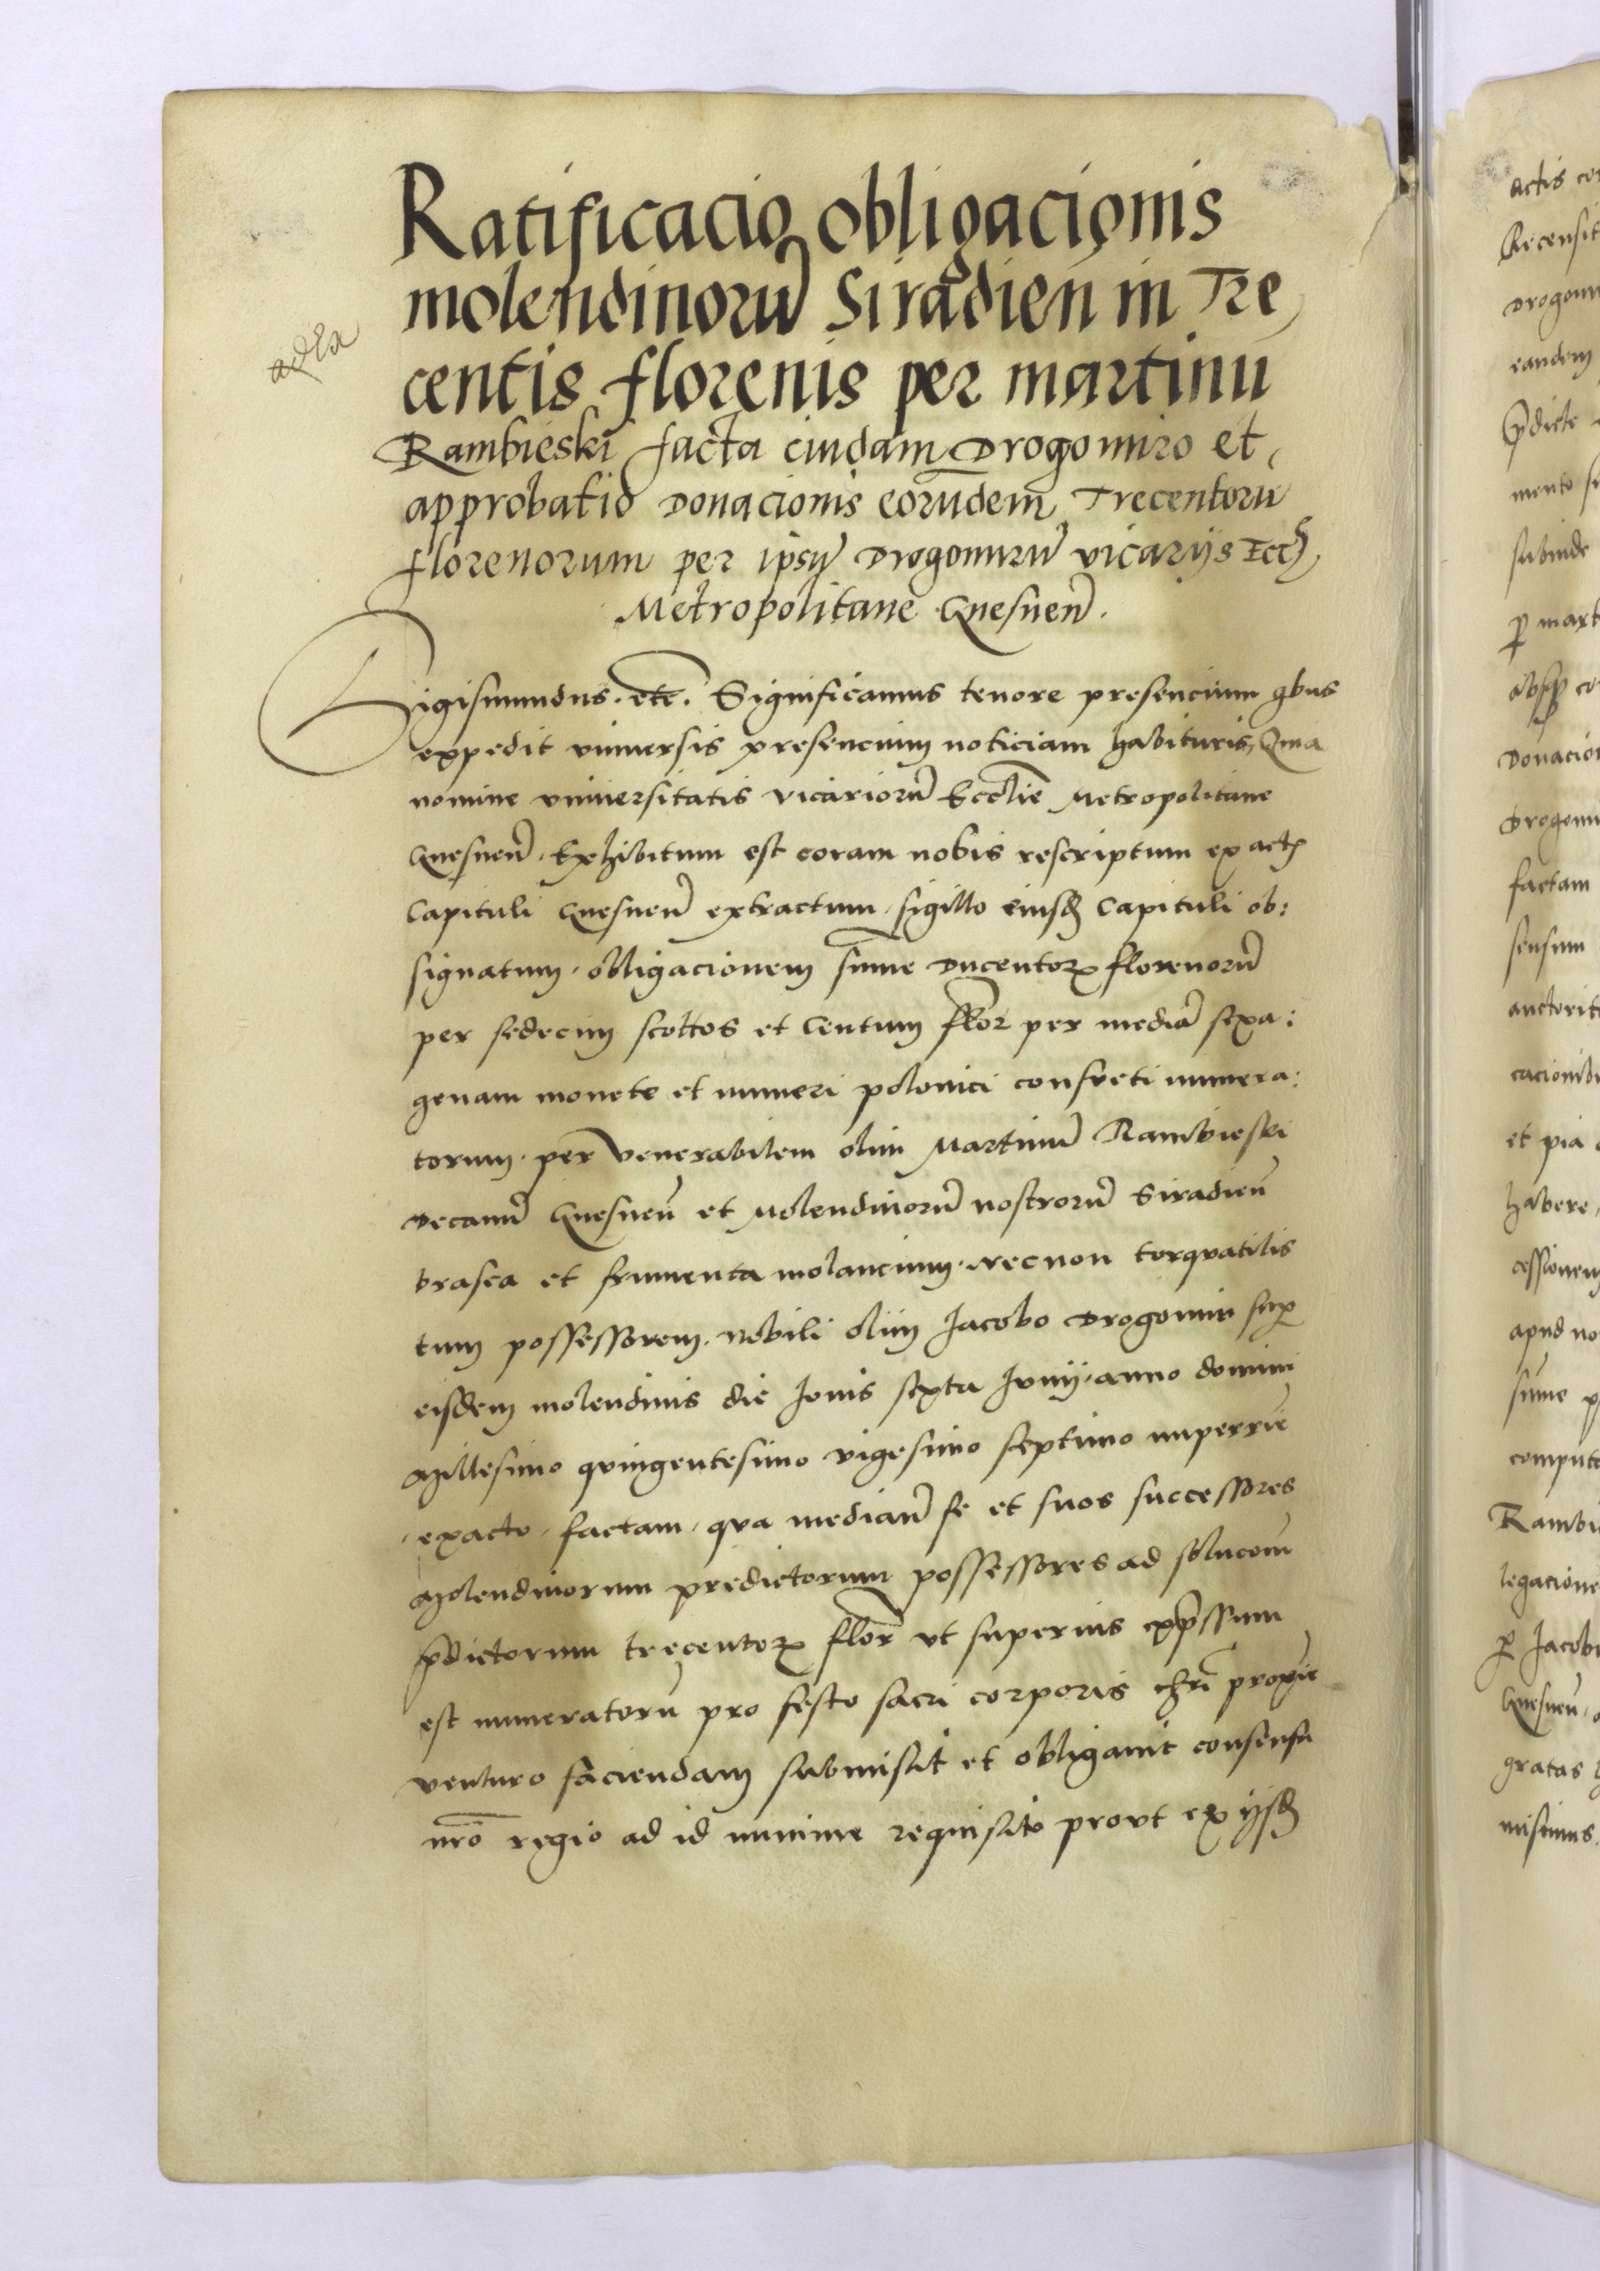 Ratificacio obligacionis
molendinoru Siradien in Tre
centis florenis per martinu
Rambieski facta cuidam Drogomiro et
approbatio Donacionis eorundem Trecentoru
florenorum per ipsu Drogomiru vicariis Eccl
Metropolitane Gnesnen.
Sigismundus. etc. Significamus tenore presencium qbus
expedit vniuersis presencium noticiam habituris, Quia
nomine vniuersitatis vicarioru Ecclie Metropolitane
Gnesnen. Exhibitum est coram nobis rescriptum ex act
Capituli Gnesnen extractum, sigillo eiusd Capituli ob:
signatum, obligacionem sume Ducentor florenoru
per sedecim scottos et Centum flor per media sexa:
genam monete et numeri polonici consueti numera:
torum. per Venerabilem olim Martinu Rambieski
Decanu Gnesnen et Molendinoru nostroru Siradien
brasea et frumenta molancium. necnon torquatilis
tum possessorem. Nobili olim Jacobo Drogomir sup
eisdem molendinis die Jouis sexta Junij. anno domini
Millesimo quingentesimo vigesimo septimo nuperrie
exacto, factam, qua median se et suos successores
Molendinorum predictorum possessores ad solucom
pdictorum trecentor flor vt superius expssum
est numeratoru pro festo sacri corporis chri proxie
venturo faciendam submisit et obligauit consensu
nro regio ad id minime requisito prout ex ijsd
actis
Recensit
Drogom
eandem
pdicte
mento
subinde
p mart
absq
Donacion
Drogom
factam
sensum
auctorit
cacionib
et pia
habere,
cessionem
apud no
sume
comput
Rambi
legacione
p Jacob
Gnesnen,
gratas
misimus.